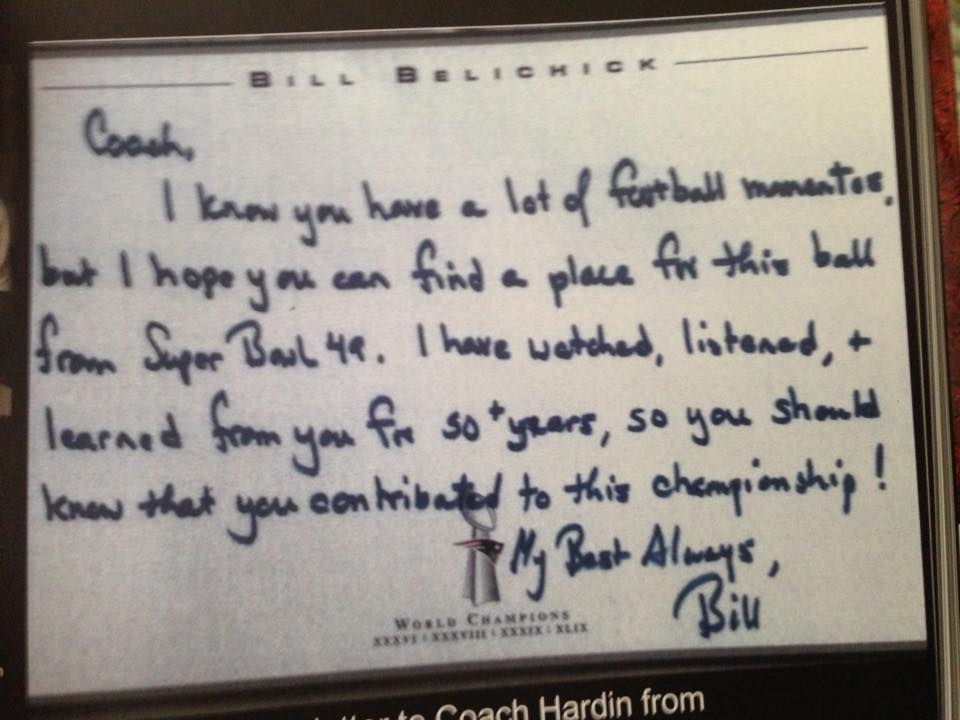 BILL BELICHICK
Coach,
I know you have a lot of football momentos,
but I hope you can find a place for this ball
from Super Bowl 49. I have watched, listened, +
learned from you for 50+ years, so you should
know that you contributed to this championship!
My Best Always,
Bill
WORLD CHAMPIONS
XXXVI : XXXVIII : XXXIX : XLIX
to Coach Hardin from